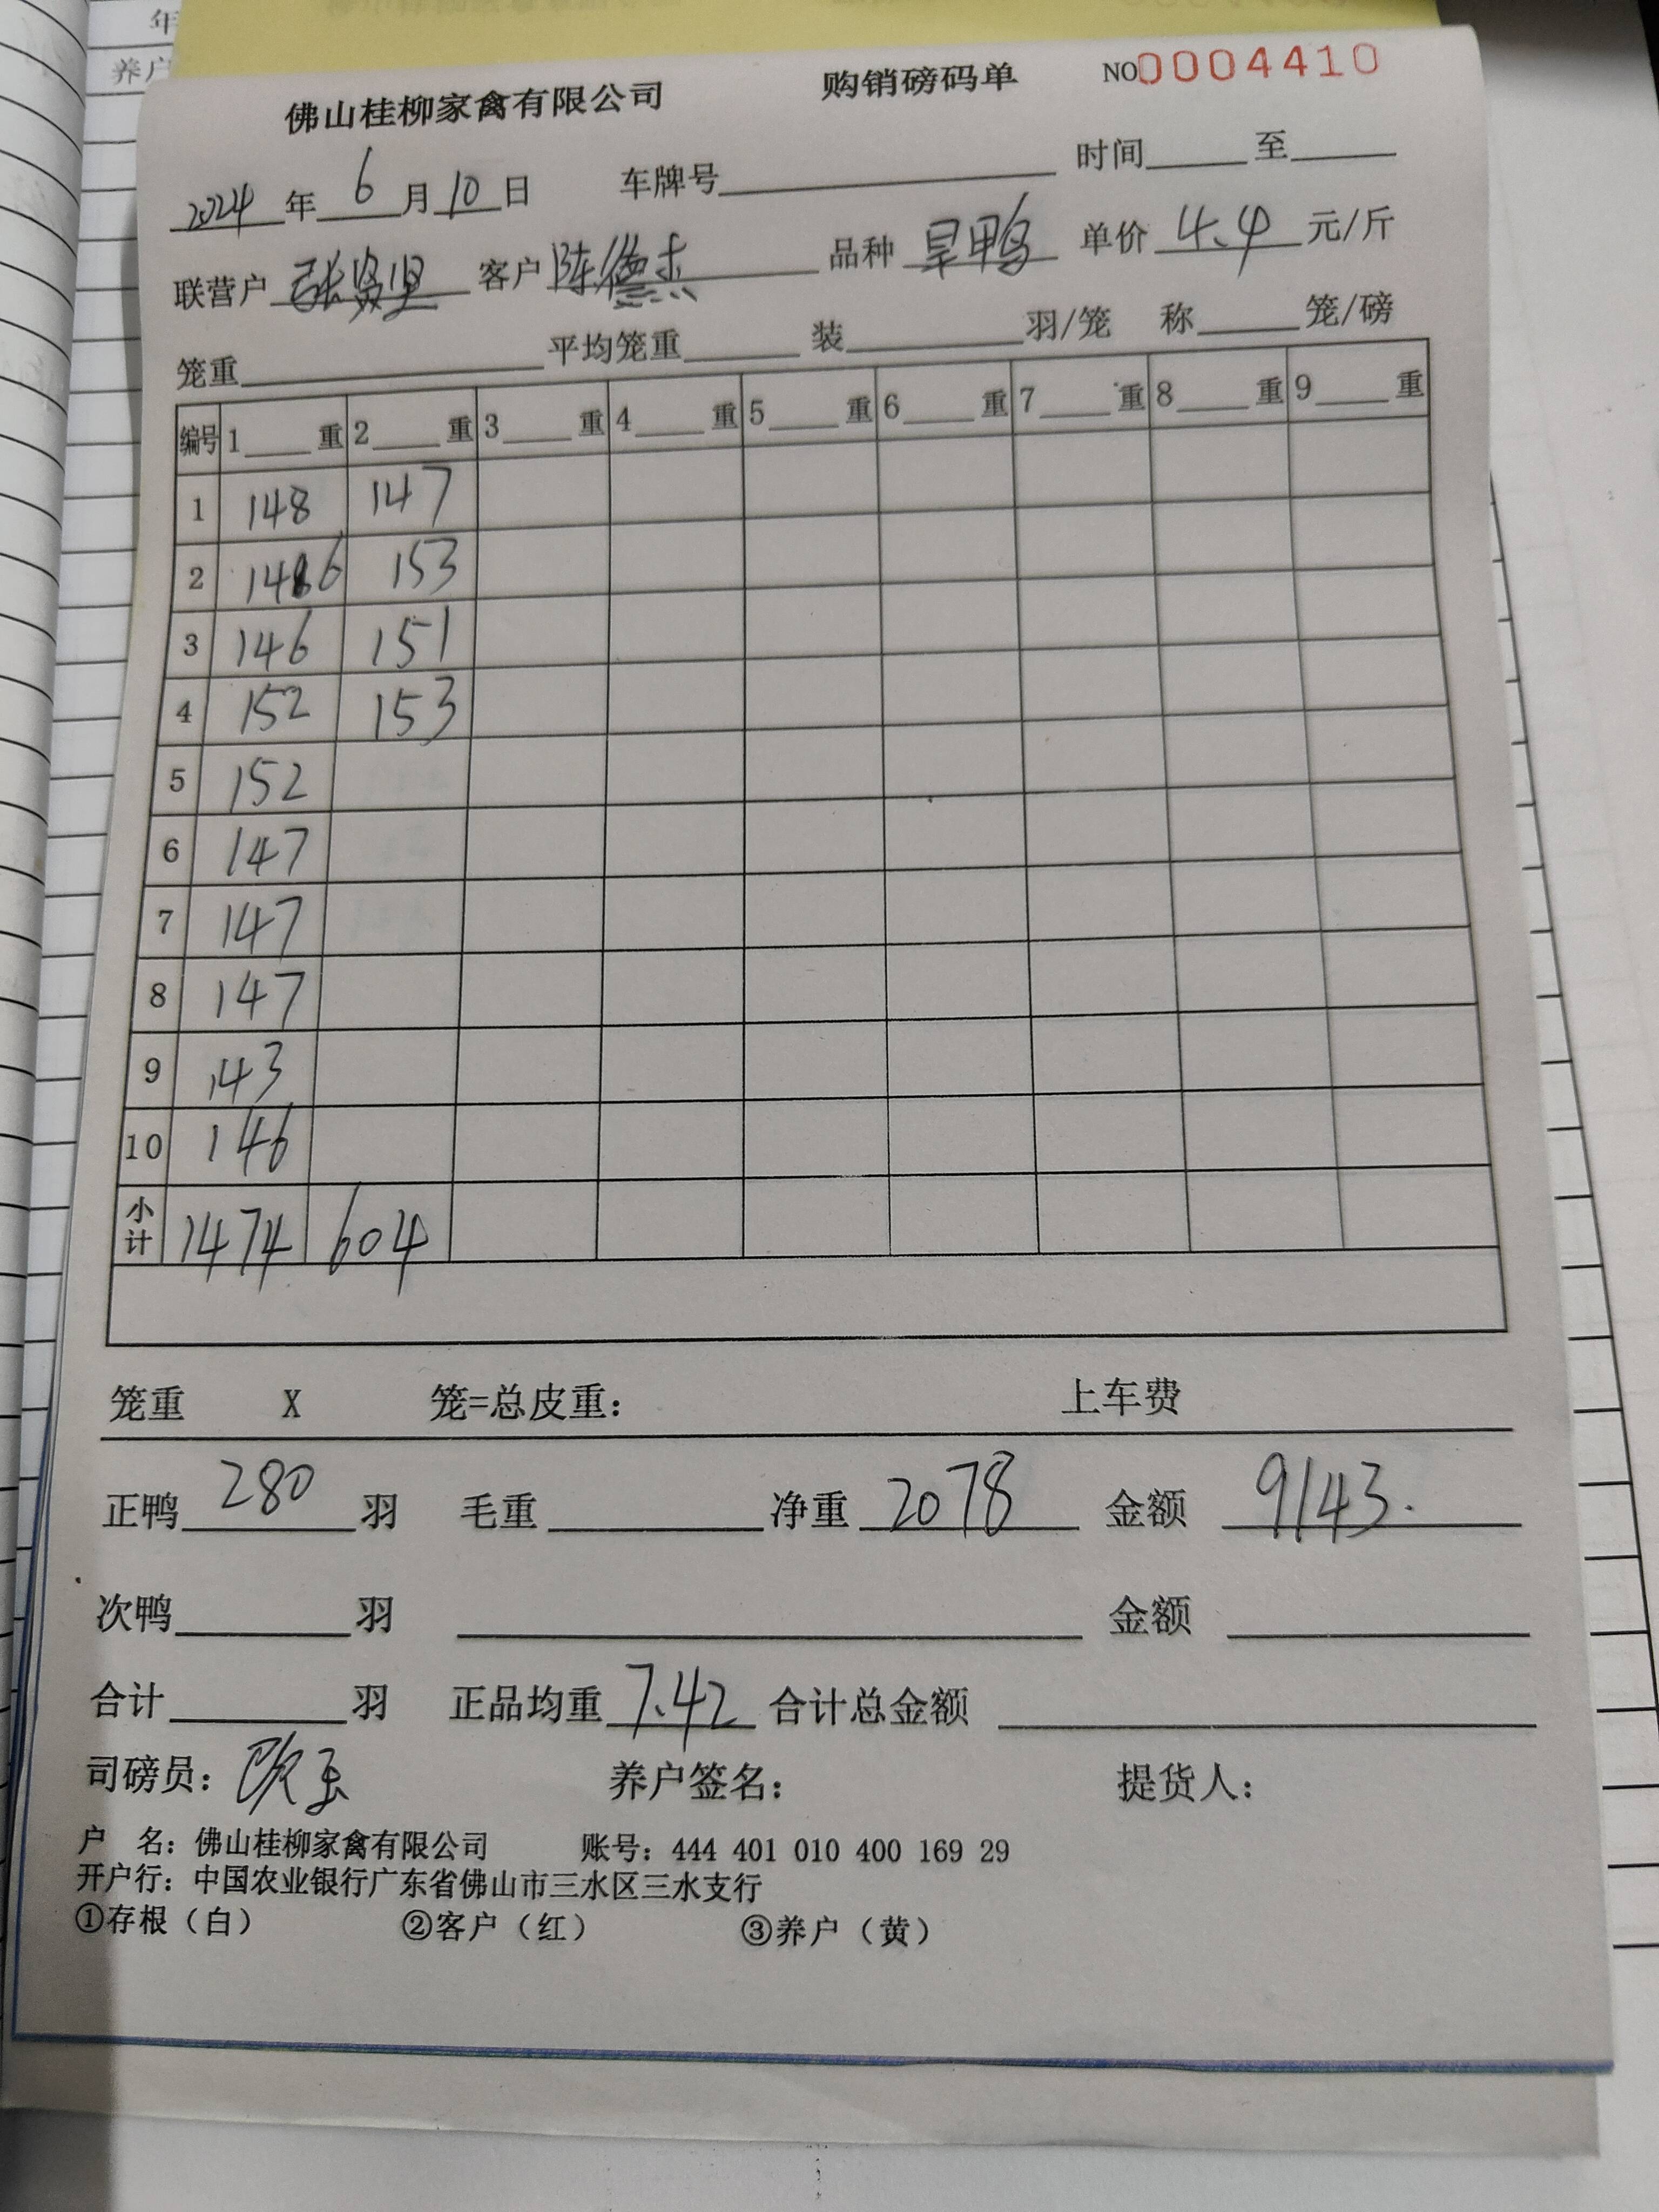 年
养户
佛山桂柳家禽有限公司 购销磅码单 NO0004410
2024年6月10日 车牌号 时间 至
联营户 张贤坚 客户 陈德杰 品种 旱鸭 单价 4.4 元/斤
笼重 平均笼重 装 羽/笼 称 笼/磅
编号 1 重 2 重 3 重 4 重 5 重 6 重 7 重 8 重 9 重
1 148 147
2 146 153
3 146 151
4 152 153
5 152
6 147
7 147
8 147
9 143
10 146
小计 1474 604
笼重 X 笼=总皮重： 上车费
正鸭 280 羽 毛重 净重 2078 金额 9143.
次鸭 羽 金额
合计 羽 正品均重 7.42 合计总金额
司磅员： 养户签名： 提货人：
户 名：佛山桂柳家禽有限公司 账号：444 401 010 400 169 29
开户行：中国农业银行广东省佛山市三水区三水支行
①存根（白） ②客户（红） ③养户（黄）